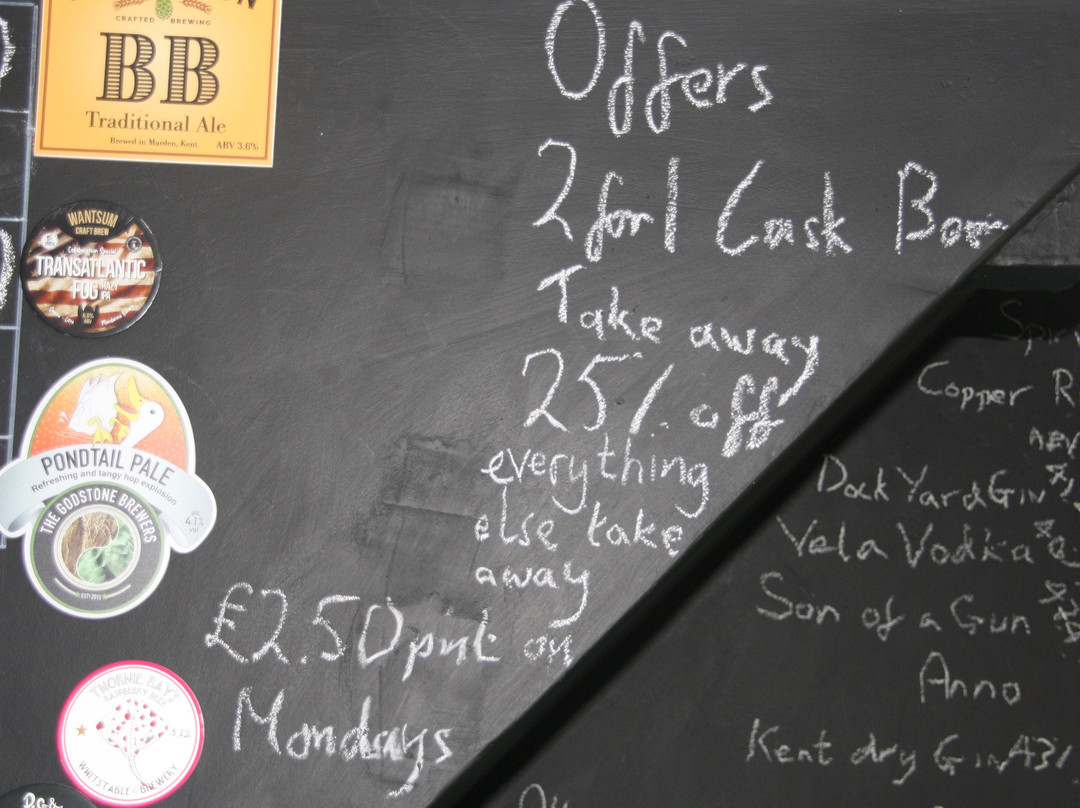 CRAFTED BREWING
BB
Traditional Ale
Brewed in Marden, Kent. ABV 3.6%
WANTSUM
CRAFT BREW
TRANSATLANTIC
FOG HAZY
IPA
PONDTAIL PALE
Refreshing and tangy hop explosion
THE GODSTONE BREWERS
alc
4.1%
vol
EST 2015
THORNIE RAY'S
RASPBERRY BEER
5.2%
WHITSTABLE BREWERY
Offers
2 for 1 Cask Beer
Take away
25% off
everything
else take
away
£2.50 pint on
Mondays
Copper R
Dock Yard Gin
Vela Vodka
Son of a Gun
Anno
Kent dry Gin 43%